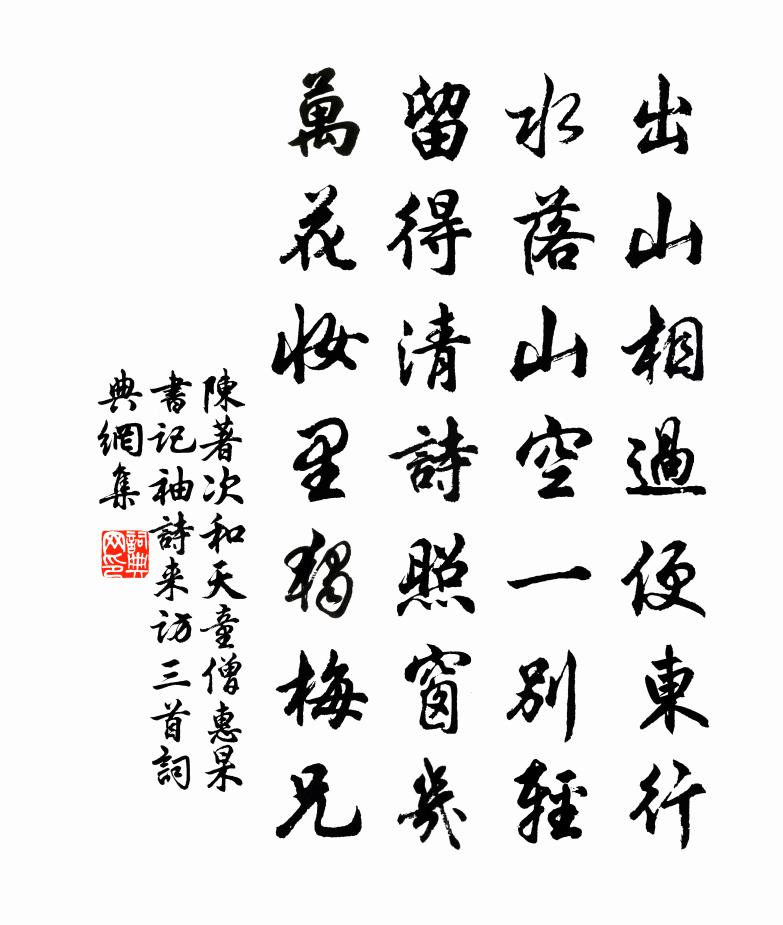 出山相過便東行
水落山空一別輕
留得清詩照窗几
萬花妝裏獨梅兄
陳著次和天童僧惠杲
書記袖詩来訪三首詞
典網集
詞典
网印